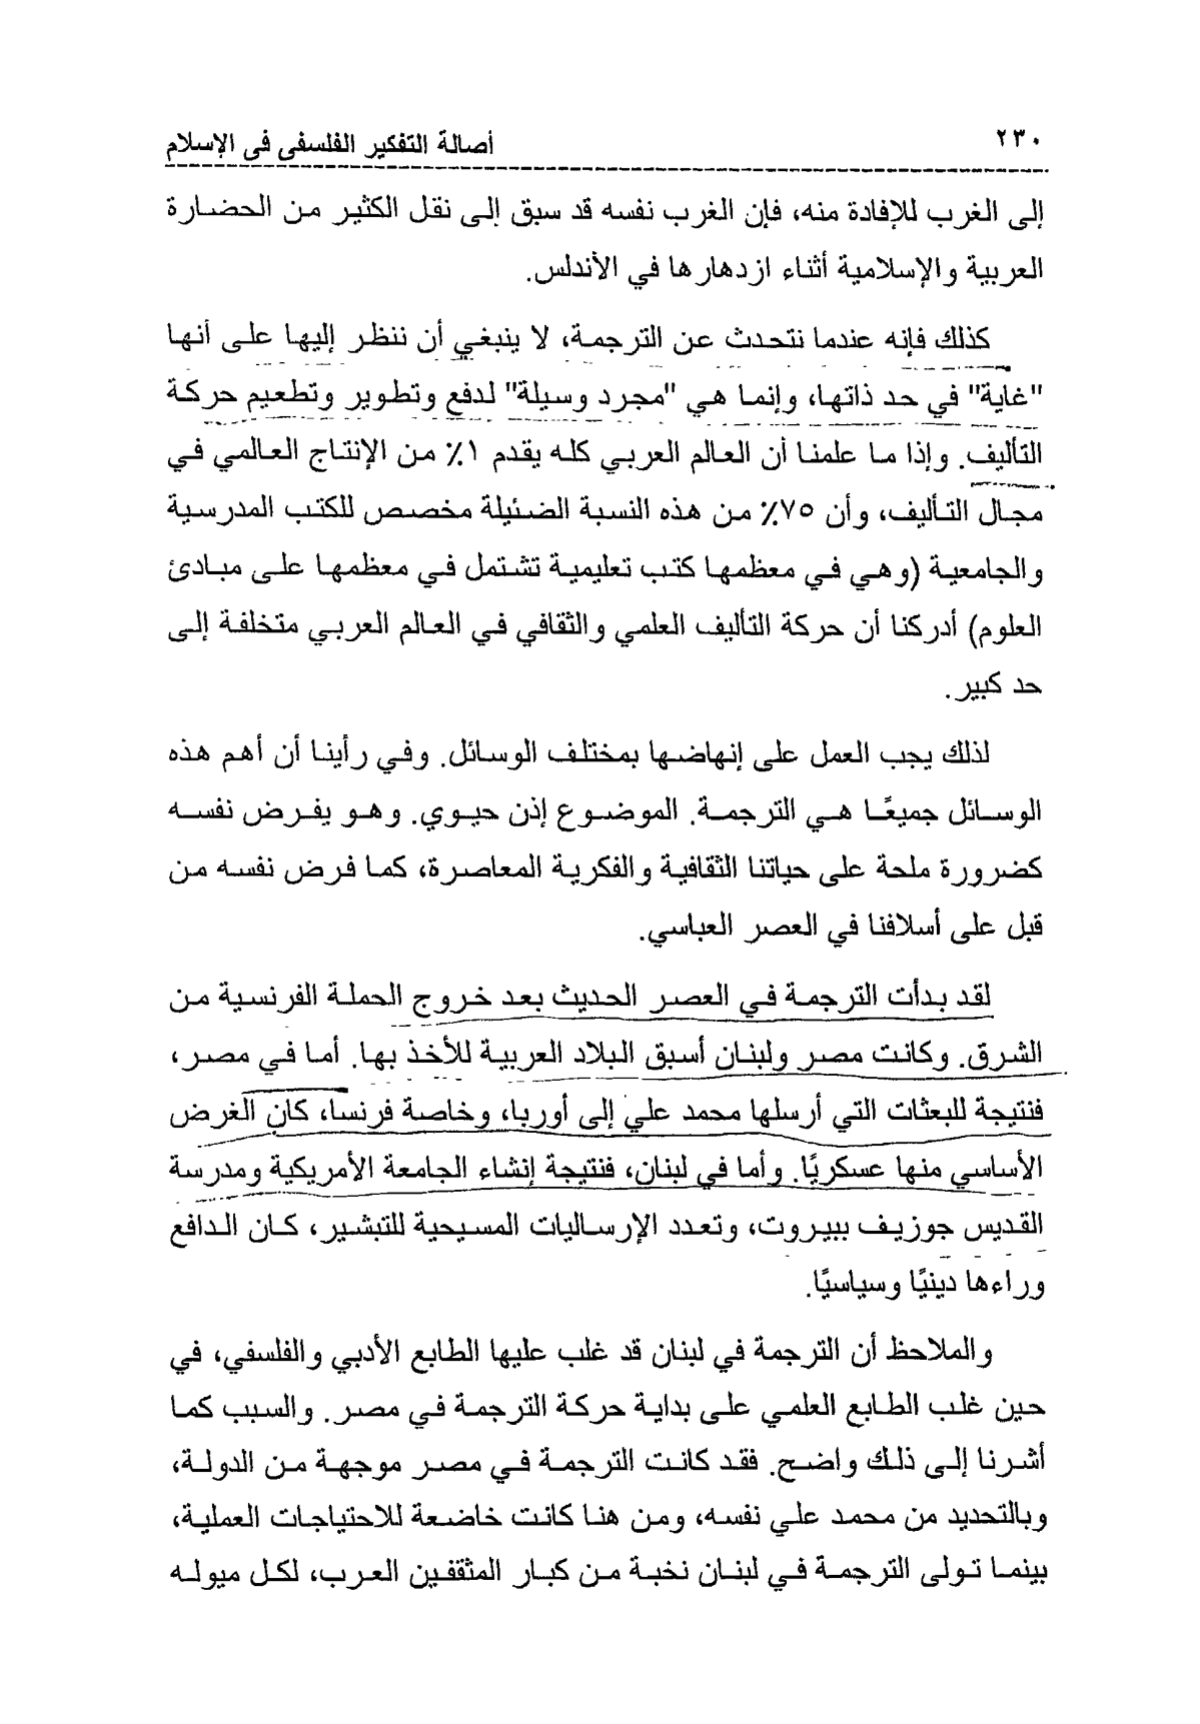 ٢٣٠
أصالة التفكير الفلسفى فى الإسلام
إلى الغرب للإفادة منه، فإن الغرب نفسه قد سبق إلى نقل الكثير من الحضارة
العربية والإسلامية أثناء ازدهارها في الأندلس.
كذلك فإنه عندما نتحدث عن الترجمة، لا ينبغي أن ننظر إليها على أنها
"غاية" في حد ذاتها، وإنما هي "مجرد وسيلة" لدفع وتطوير وتطعيم حركة
التأليف. وإذا ما علمنا أن العالم العربي كله يقدم ١٪ من الإنتاج العالمي في
مجال التأليف، وأن ٧٥٪ من هذه النسبة الضئيلة مخصص للكتب المدرسية
والجامعية (وهي في معظمها كتب تعليمية تشتمل في معظمها على مبادئ
العلوم) أدركنا أن حركة التأليف العلمي والثقافي في العالم العربي متخلفة إلى
حد كبير.
لذلك يجب العمل على إنهاضها بمختلف الوسائل. وفي رأينا أن أهم هذه
الوسائل جميعًا هي الترجمة. الموضوع إذن حيوي. وهو يفرض نفسه
كضرورة ملحة على حياتنا الثقافية والفكرية المعاصرة، كما فرض نفسه من
قبل على أسلافنا في العصر العباسي.
لقد بدأت الترجمة في العصر الحديث بعد خروج الحملة الفرنسية من
الشرق. وكانت مصر ولبنان أسبق البلاد العربية للأخذ بها. أما في مصر،
فنتيجة للبعثات التي أرسلها محمد علي إلى أوربا، وخاصة فرنسا، كان الغرض
الأساسي منها عسكريًا. وأما في لبنان، فنتيجة إنشاء الجامعة الأمريكية ومدرسة
القديس جوزيف ببيروت، وتعدد الإرساليات المسيحية للتبشير، كان الدافع
وراءها دينيًا وسياسيًا.
والملاحظ أن الترجمة في لبنان قد غلب عليها الطابع الأدبي والفلسفي، في
حين غلب الطابع العلمي على بداية حركة الترجمة في مصر. والسبب كما
أشرنا إلى ذلك واضح. فقد كانت الترجمة في مصر موجهة من الدولة،
وبالتحديد من محمد علي نفسه، ومن هنا كانت خاضعة للاحتياجات العملية،
بينما تولى الترجمة في لبنان نخبة من كبار المثقفين العرب، لكل ميوله